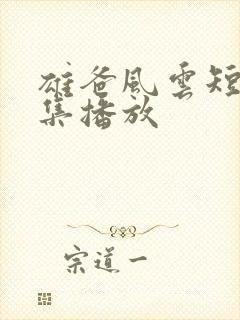 雄爸風雲短
集播放
宗道一